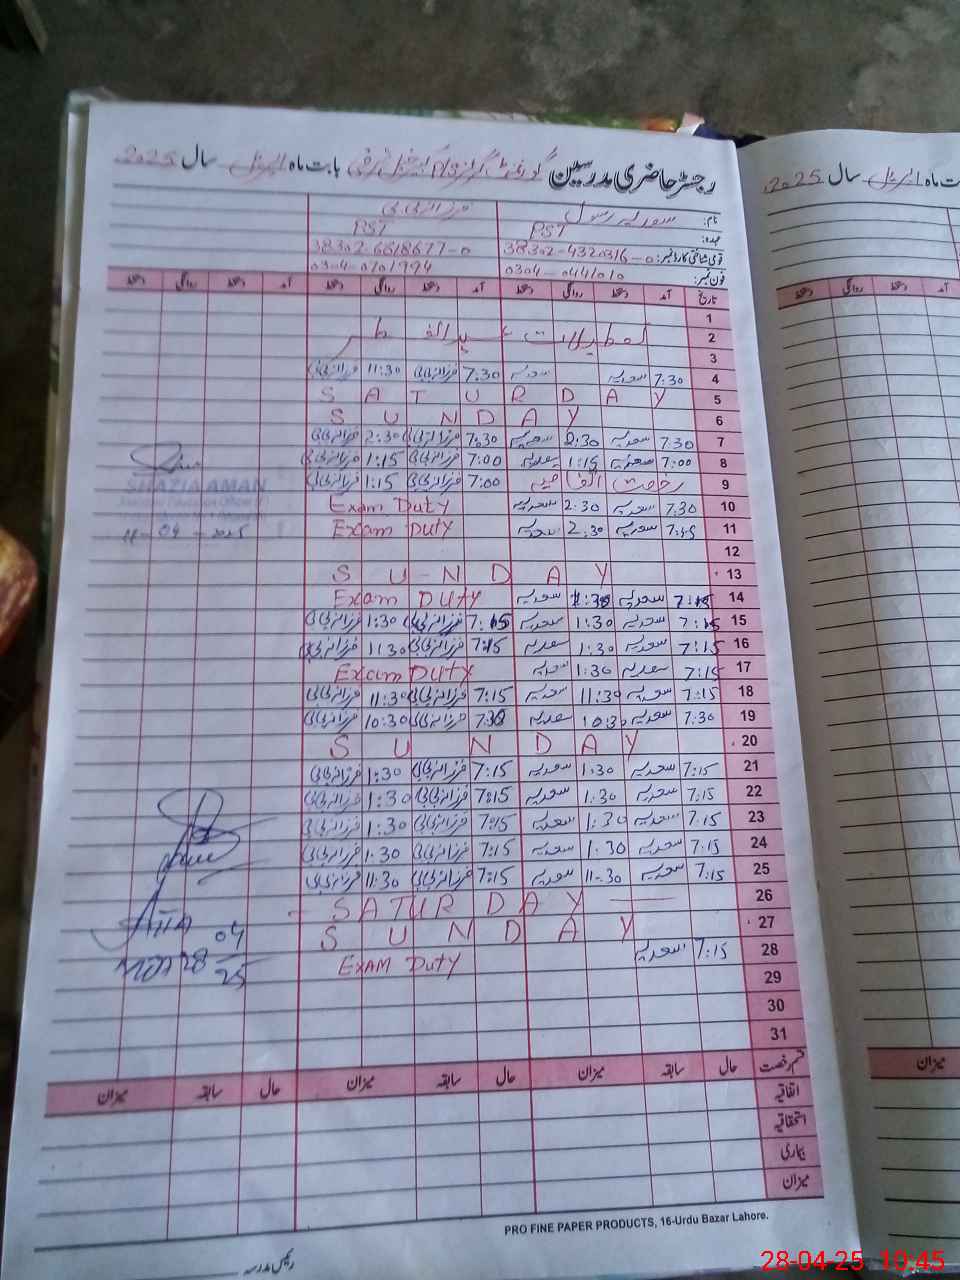 رجسٹر حاضری مدرسین گورنمنٹ گرلز بابت ماہ اپریل سال 2025
نام: سعدیہ رسول فرزانہ بی بی
عہدہ: PST PST
قومی شناختی کارڈ نمبر: 38302-4320316-0 38302-6618677-0
فون نمبر: 0304-0441010 0304-0701994
تاریخ آمد دستخط روانگی دستخط آمد دستخط روانگی دستخط آمد دستخط روانگی دستخط
1
2 تعطیلات عید الفطر
3
4 7:30 سعدیہ سعدیہ 7:30 فرزانہ بی بی 11:30 فرزانہ بی بی
5 SATURDAY
6 SUNDAY
7 7:30 سعدیہ 2:30 سعدیہ 7:30 فرزانہ بی بی 2:30 فرزانہ بی بی
8 7:00 سعدیہ 1:15 سعدیہ 7:00 فرزانہ بی بی 1:15 فرزانہ بی بی
9 رخصت اتفاقیہ 7:00 فرزانہ بی بی 1:15 فرزانہ بی بی
10 7:30 سعدیہ 2:30 سعدیہ Exam Duty
11 سعدیہ 2:30 سعدیہ Exam Duty
SHAZIA AMAN
11-04-2025
12
13 SUNDAY
14 7:15 سعدیہ سعدیہ Exam DUTY
15 7:15 سعدیہ 1:30 سعدیہ 7:15 فرزانہ بی بی 1:30 فرزانہ بی بی
16 7:15 سعدیہ 1:30 سعدیہ 7:15 فرزانہ بی بی فرزانہ بی بی
17 7:15 سعدیہ 1:30 سعدیہ Exam DUTY
18 7:15 سعدیہ 11:30 سعدیہ 7:15 فرزانہ بی بی 11:30 فرزانہ بی بی
19 7:30 سعدیہ 10:30 سعدیہ 7:30 فرزانہ بی بی 10:30 فرزانہ بی بی
20 SUNDAY
21 7:15 سعدیہ 1:30 سعدیہ 7:15 فرزانہ بی بی 1:30 فرزانہ بی بی
22 7:15 سعدیہ 1:30 سعدیہ 7:15 فرزانہ بی بی 1:30 فرزانہ بی بی
23 7:15 سعدیہ 1:30 سعدیہ 7:15 فرزانہ بی بی 1:30 فرزانہ بی بی
24 7:15 سعدیہ 1:30 سعدیہ 7:15 فرزانہ بی بی 1:30 فرزانہ بی بی
25 7:15 سعدیہ 11-30 سعدیہ 7:15 فرزانہ بی بی 11:30 فرزانہ بی بی
26 SATURDAY
27 SUNDAY
28 7:15 سعدیہ EXAM Duty
28 04
25
29
30
31
قسم رخصت حال سابقہ میزان حال سابقہ میزان حال سابقہ میزان
اتفاقیہ
استحقاقیہ
بیماری
میزان
PRO FINE PAPER PRODUCTS, 16-Urdu Bazar Lahore.
رئیس مدرسہ
ت ماہ اپریل سال 2025
آمد دستخط روانگی دستخط
میزان
28-04-25 10:45